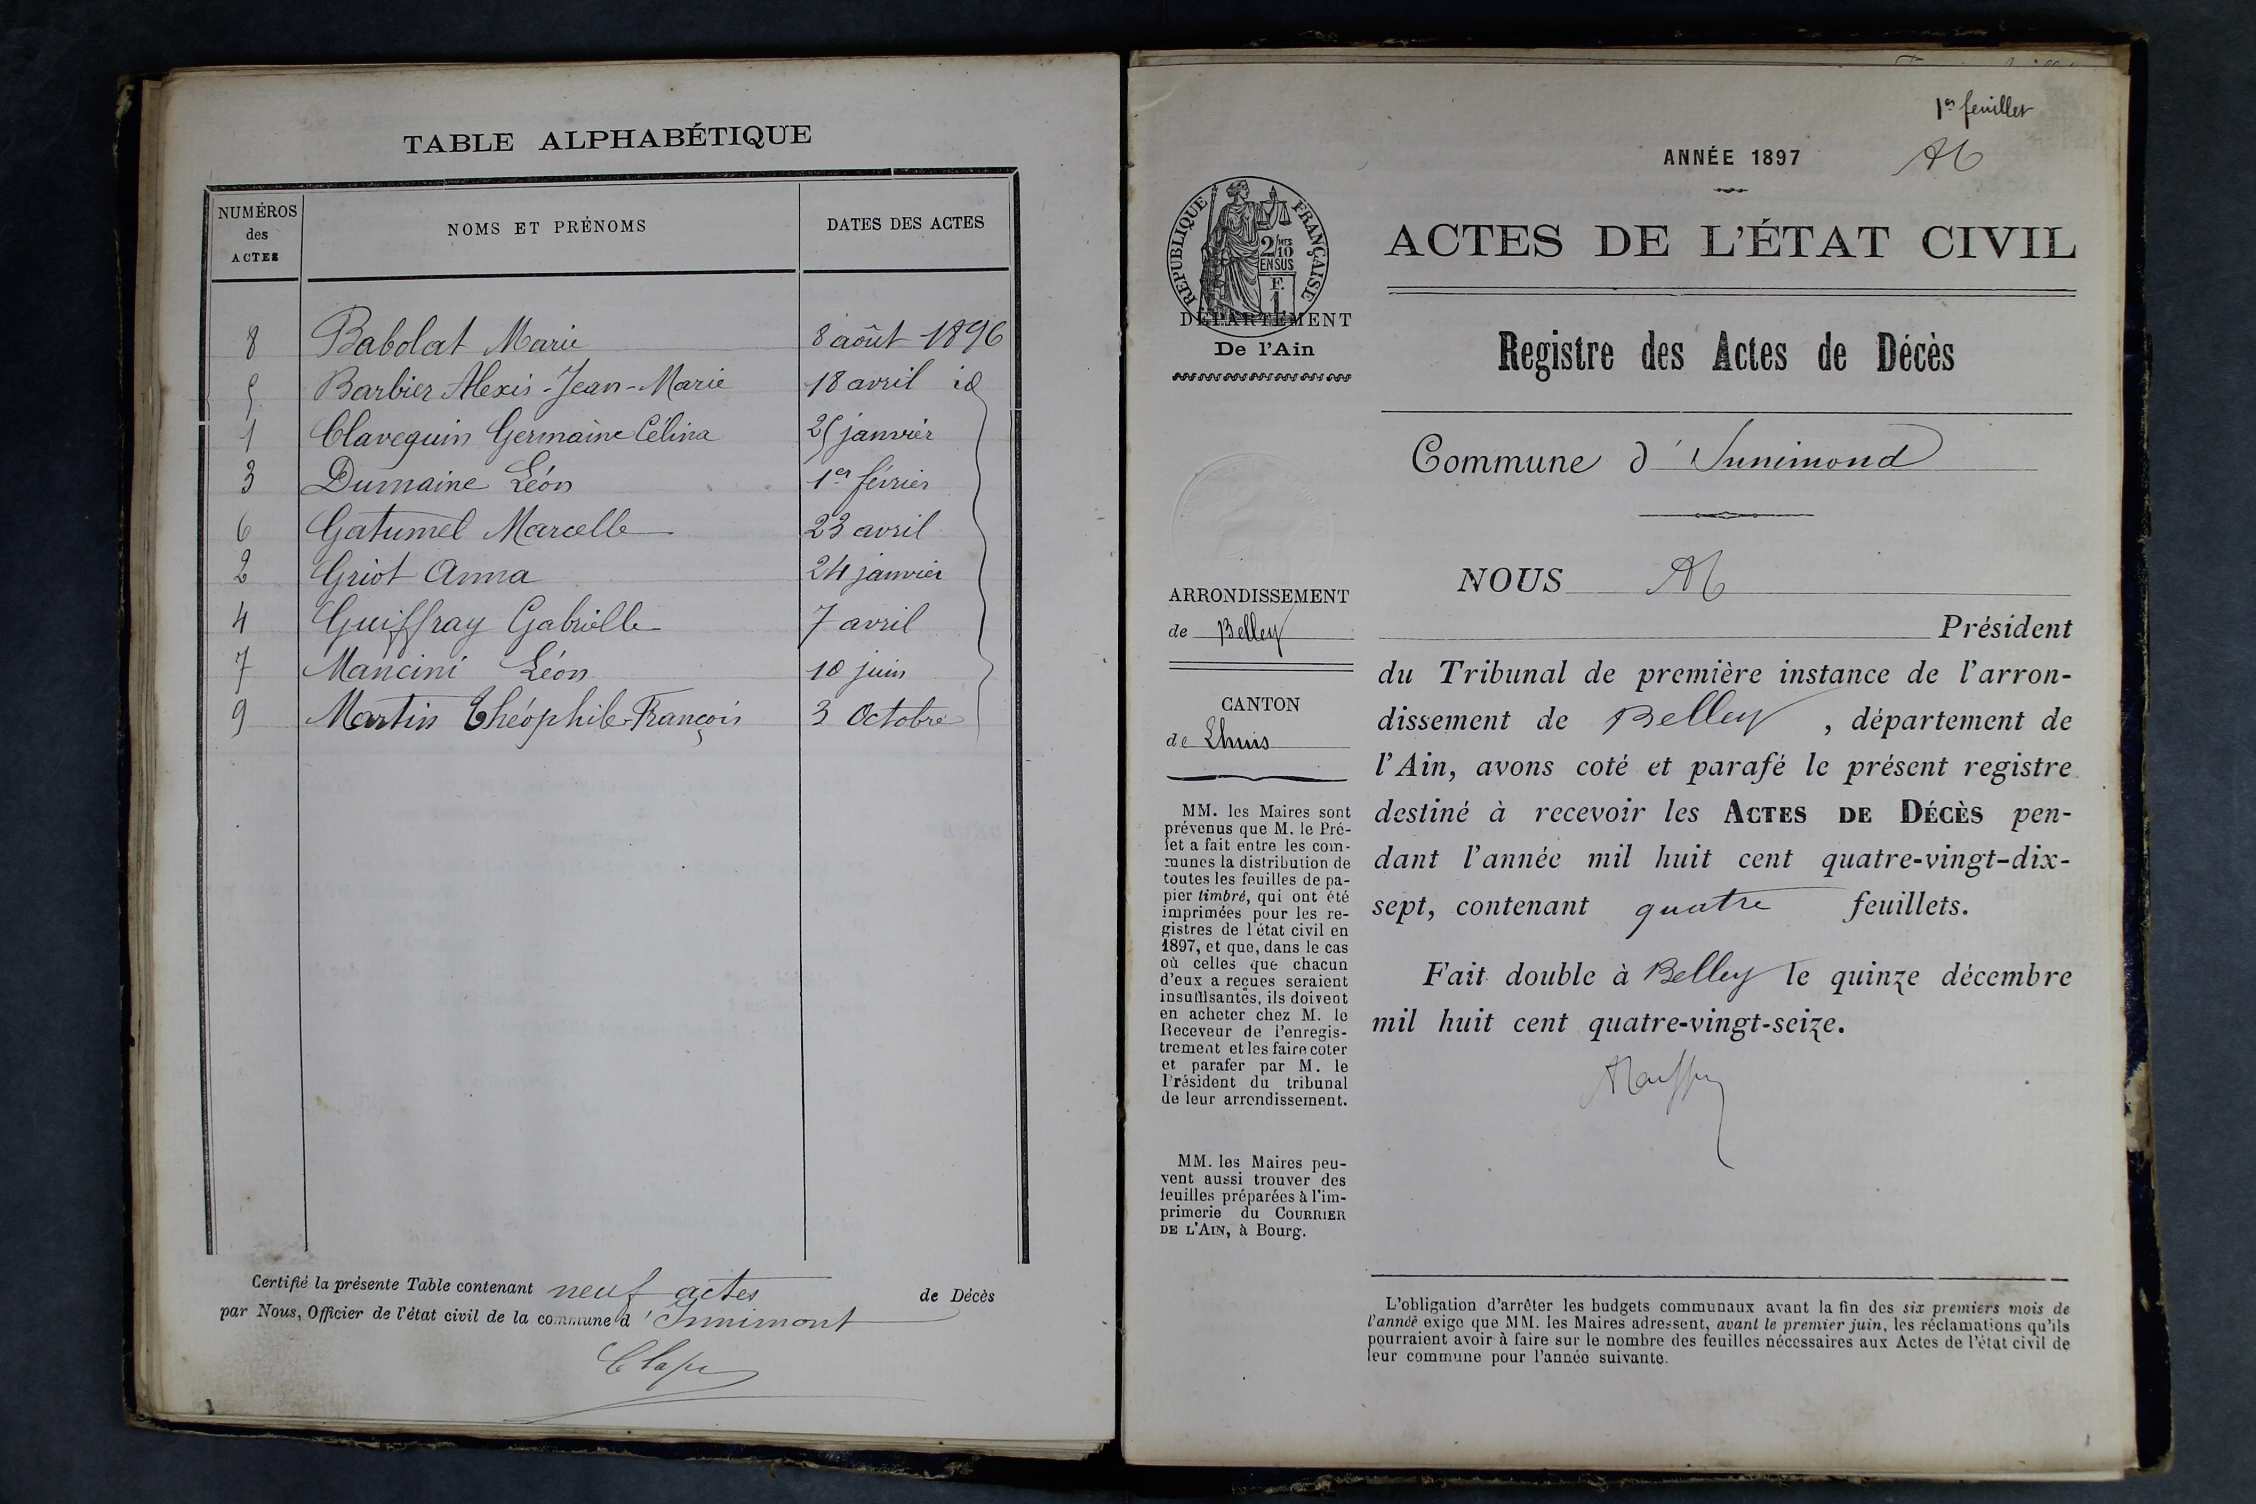 TABLE ALPHABÉTIQUE
NUMÉROS des ACTES
NOMS ET PRÉNOMS
DATES DES ACTES
8 Babolat Marie 8 août 1896
5 Barbier Alexis-Jean-Marie 18 avril id
1 Clavequin Germaine Célina 25 janvier
3 Dumaine Léon 1er février
6 Gatumel Marcelle 23 avril
2 Griot Anna 24 janvier
4 Guiffray Gabrielle 7 avril
7 Mancini Léon 10 juin
9 Martin Théophile-François 3 Octobre
Certifié la présente Table contenant neuf actes de Décès
par Nous, Officier de l'état civil de la commune d'Innimont
1er feuillet
ANNÉE 1897
RÉPUBLIQUE FRANÇAISE
2/10 MES
EN SUS
F.
1
DÉPARTEMENT
De l'Ain
ACTES DE L'ÉTAT CIVIL
Registre des Actes de Décès
Commune d'Innimond
ARRONDISSEMENT
de Belley
CANTON
de Lhuis
MM. les Maires sont
prévenus que M. le Pré-
fet a fait entre les com-
munes la distribution de
toutes les feuilles de pa-
pier timbré, qui ont été
imprimées pour les re-
gistres de l'état civil en
1897, et que, dans le cas
où celles que chacun
d'eux a reçues seraient
insuffisantes, ils doivent
en acheter chez M. le
Receveur de l'enregis-
trement et les faire coter
et parafer par M. le
Président du tribunal
de leur arrondissement.
MM. les Maires peu-
vent aussi trouver des
feuilles préparées à l'im-
primerie du COURRIER
DE L'AIN, à Bourg.
NOUS
Président
du Tribunal de première instance de l'arron-
dissement de Belley, département de
l'Ain, avons coté et parafé le présent registre
destiné à recevoir les ACTES DE DÉCÈS pen-
dant l'année mil huit cent quatre-vingt-dix-
sept, contenant quatre feuillets.
Fait double à Belley le quinze décembre
mil huit cent quatre-vingt-seize.
L'obligation d'arrêter les budgets communaux avant la fin des six premiers mois de
l'année exige que MM. les Maires adressent, avant le premier juin, les réclamations qu'ils
pourraient avoir à faire sur le nombre des feuilles nécessaires aux Actes de l'état civil de
leur commune pour l'année suivante.